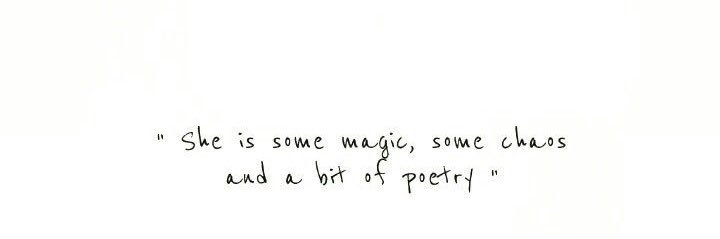 " She is some magic, some chaos
and a bit of poetry "